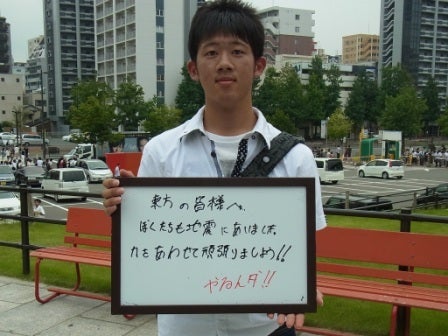 東方の皆様へ、
ぼくたちも地震にあいました。
力をあわせて頑張りましょう!!
やるんダ!!